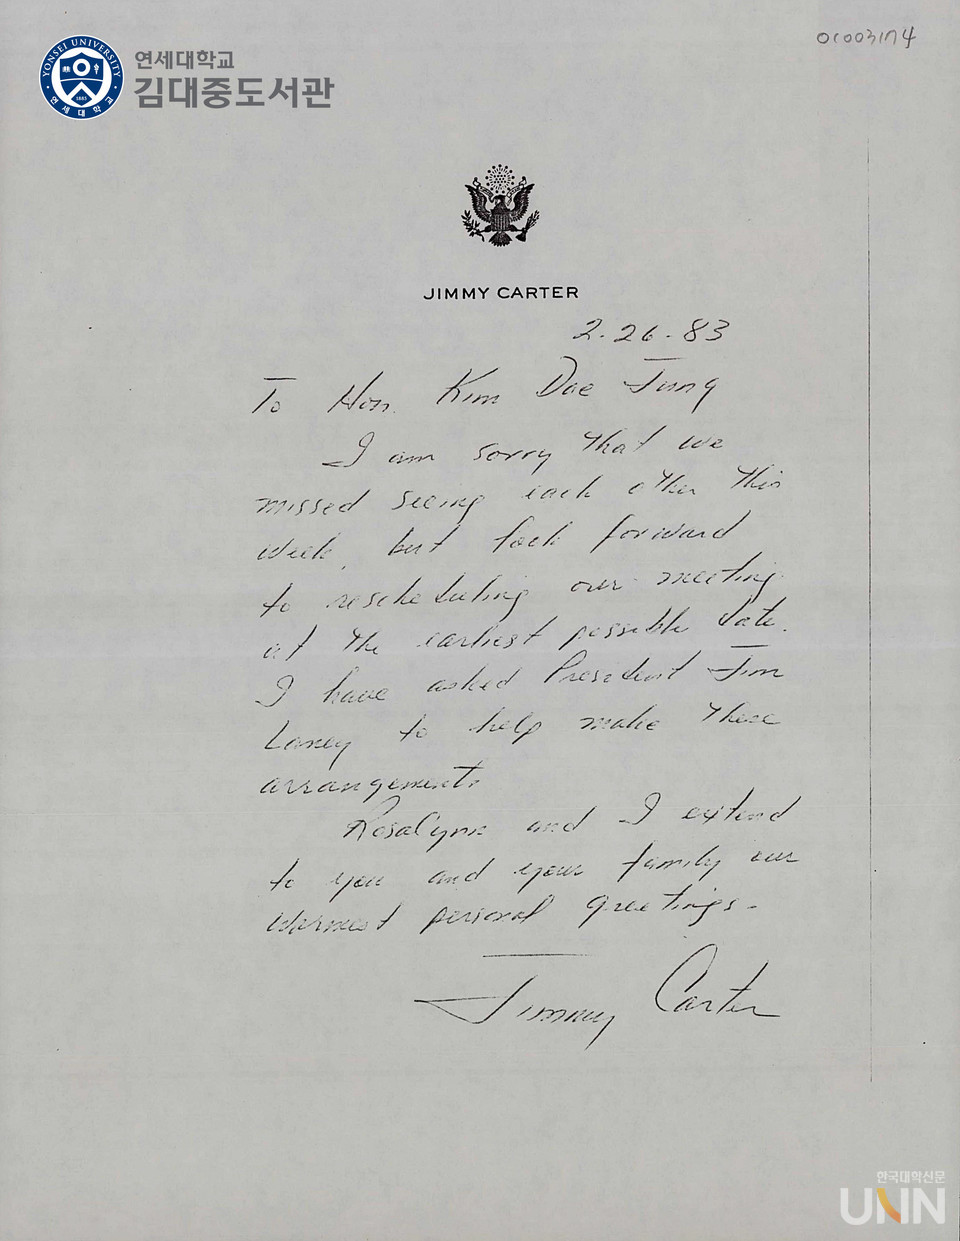 01003174
YONSEI UNIVERSITY
1885
연세대학교
연세대학교
김대중도서관
JIMMY CARTER
2-26-83
To Hon. Kim Dae Jung
I am sorry that we
missed seeing each other this
week, but look forward
to rescheduling our meeting
at the earliest possible date.
I have asked President Jim
Laney to help make these
arrangements
Rosalynn and I extend
to you and your family our
warmest personal greetings -
Jimmy Carter
한국대학신문
UNN